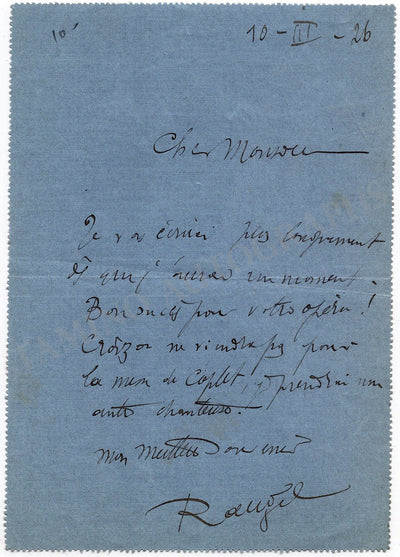 10'
10 - III - 26
Cher Monsieur
Je vous écrirai plus longuement
dès que j'aurai un moment.
Bon succès pour votre opéra!
Croiza ne viendra pas pour
la messe de Caplet, je prendrai une
autre chanteuse.
mon meilleur souvenir